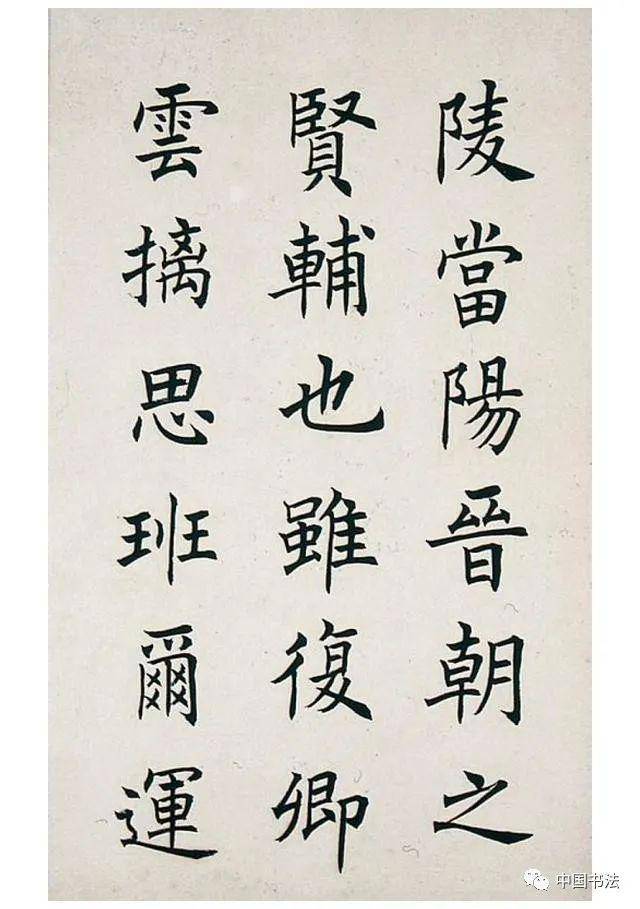 陵當陽晉朝之
賢輔也雖復卿
雲摛思班爾運
中国书法